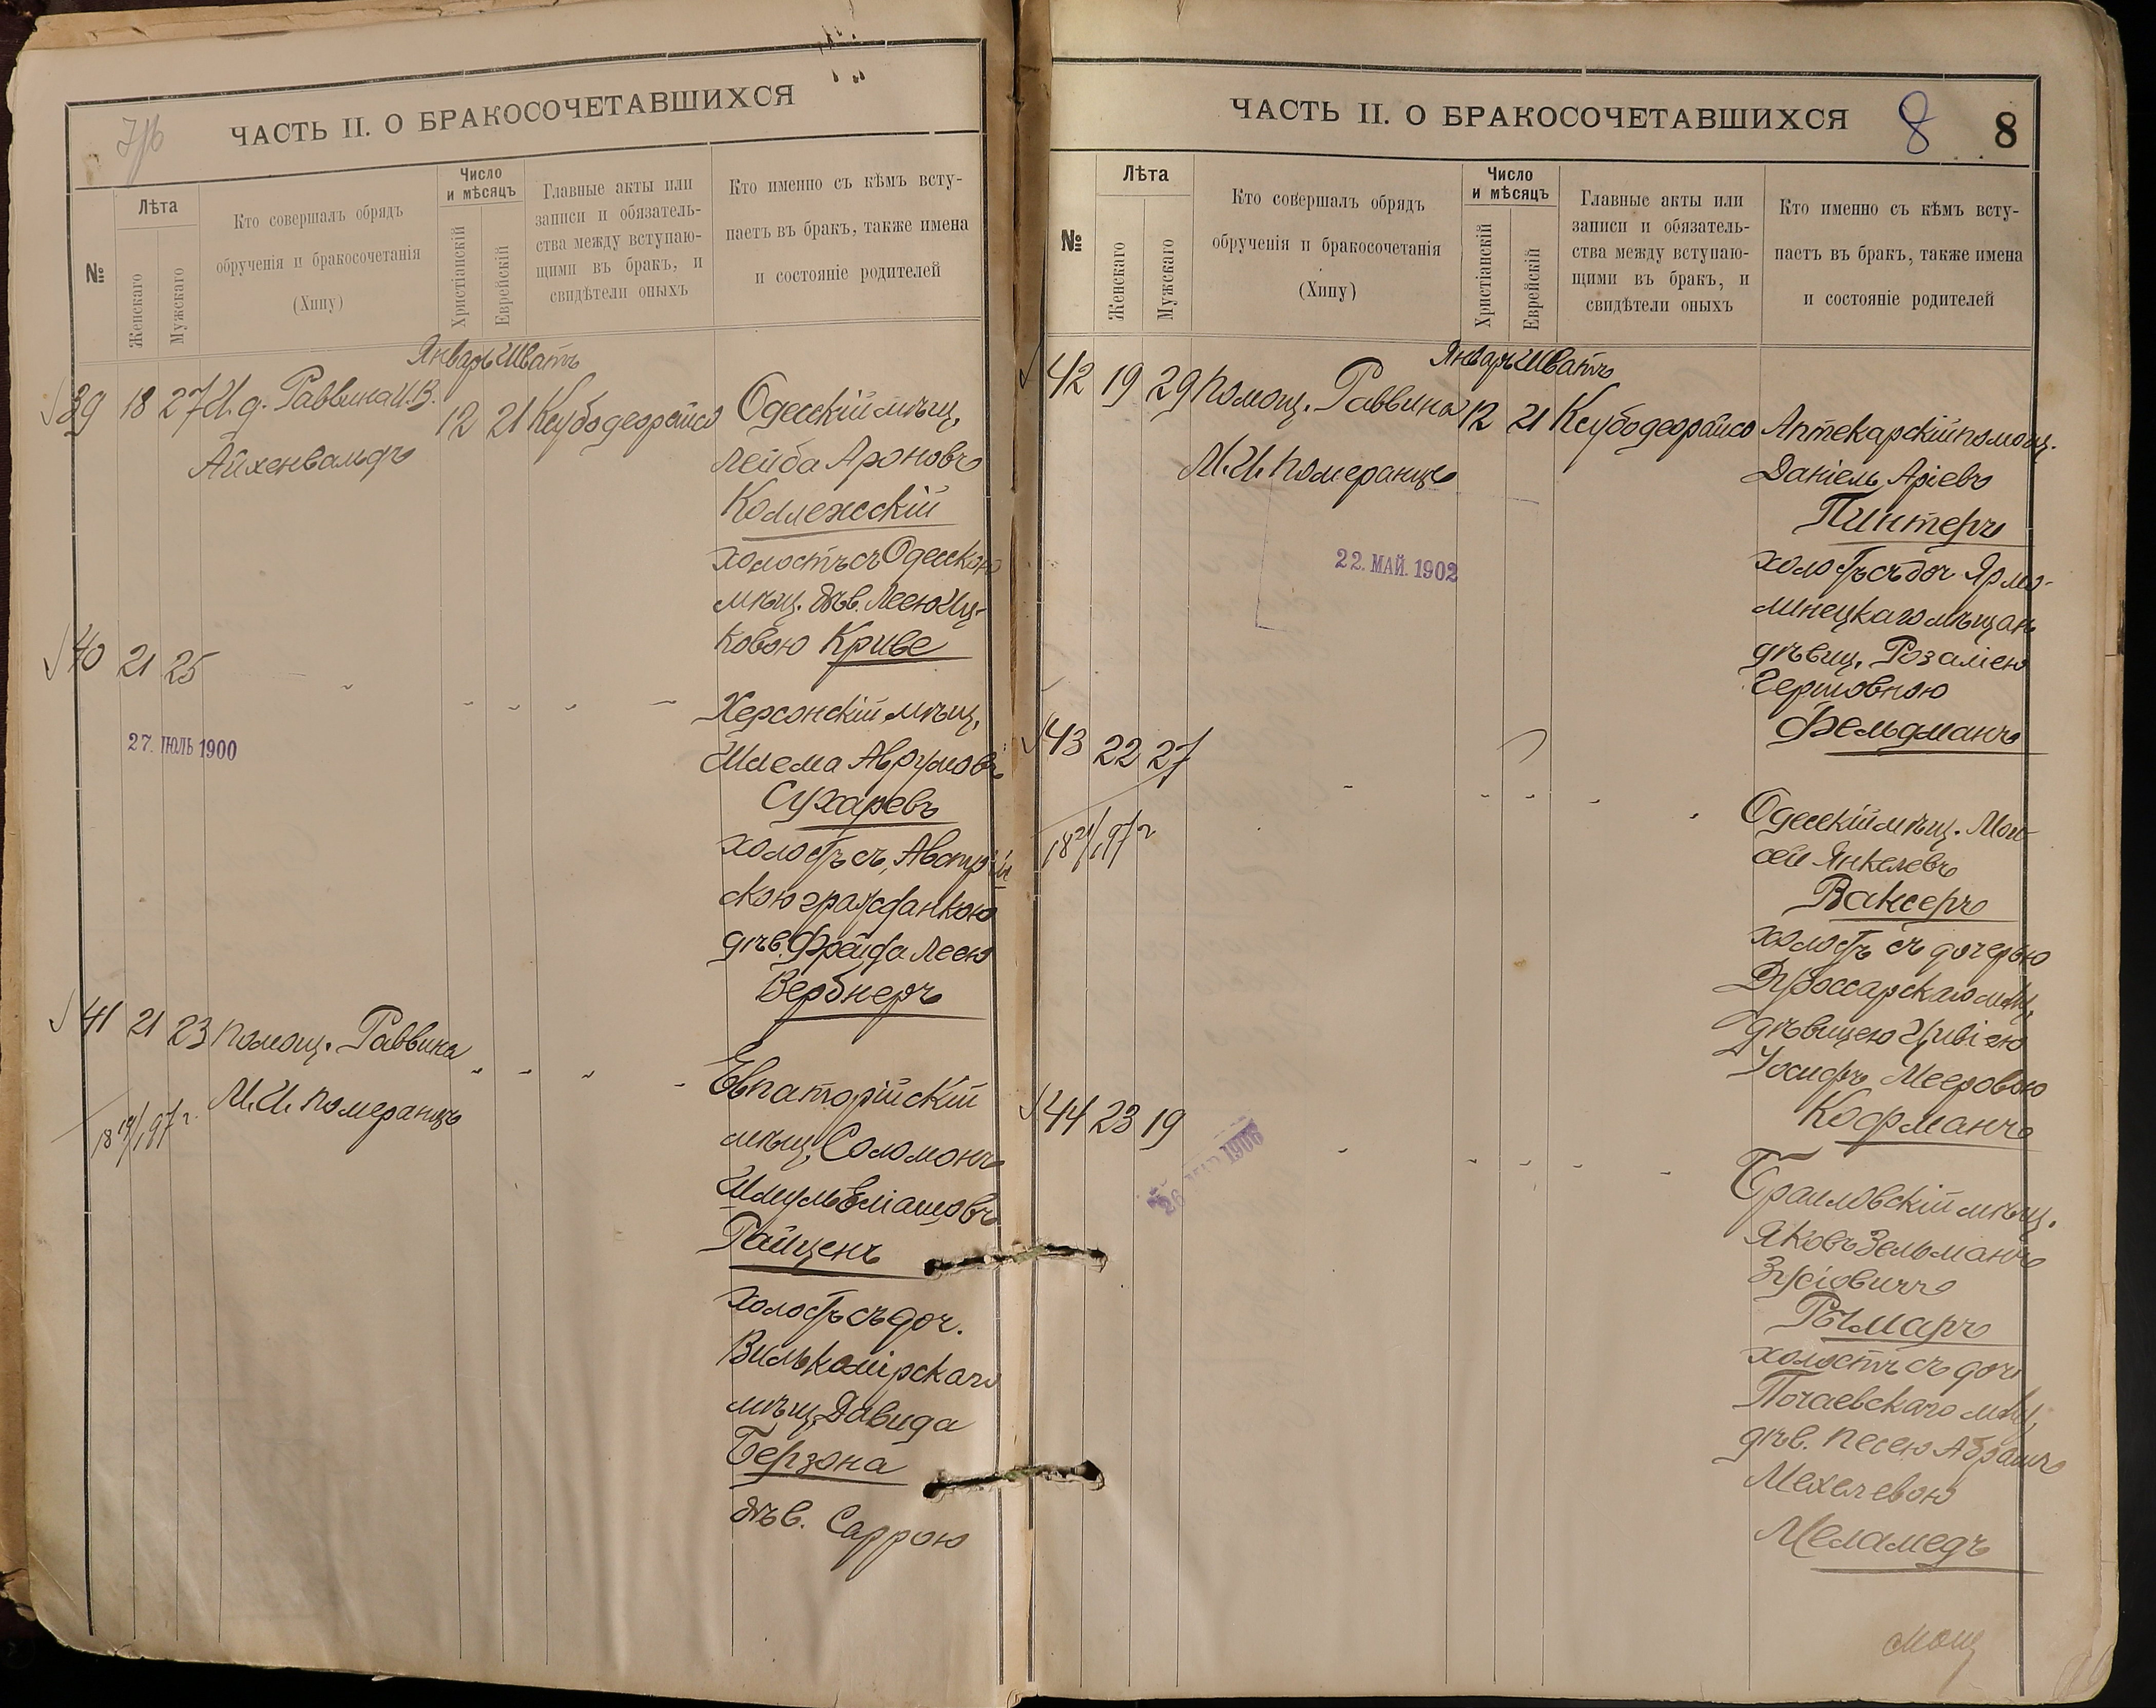 ЧАСТЬ II. О БРАКОСОЧЕТАВШИХСЯ
№
Лѣта
Женскаго
Мужскаго
Кто совершалъ обрядъ
обрученія и бракосочетанія
(Хипу)
Число
и мѣсяцъ
Христіанскій
Еврейскій
Главные акты или
записи и обязатель-
ства между вступаю-
щими въ бракъ, и
свидѣтели оныхъ
Кто именно съ кѣмъ всту-
паетъ въ бракъ, также имена
и состояніе родителей
Январь Шватъ
39 18 27 И. д. Раввина И. В. 12 21 Ксубодеорайсо Одесскій мѣщ.
Айхенвальдъ Лейба Ароновъ
Коллежскій
холостъ съ Одесскою
мѣщ. дѣв. Леею Иц-
ковою Криве
40 21 25 Херсонскій мѣщ.
27. ІЮЛЬ 1900
Шлема Аврумовъ
Сухаревъ
холостъ съ Австрій
скою гражданкою
дѣв. Фрейда Леею
Вербнеръ
41 21 23 помощ. Раввина Евпаторійскій
М. И. Померанцъ
мѣщ. Соломонъ
Шмуль Еліашовъ
Райценъ
холостъ съ доч.
Вилькомірскаго
мѣщ. Давида
Берзона
дѣв. Саррою
ЧАСТЬ II. О БРАКОСОЧЕТАВШИХСЯ
8 8
№
Лѣта
Женскаго
Мужскаго
Кто совершалъ обрядъ
обрученія и бракосочетанія
(Хипу)
Число
и мѣсяцъ
Христіанскій
Еврейскій
Главные акты или
записи и обязатель-
ства между вступаю-
щими въ бракъ, и
свидѣтели оныхъ
Кто именно съ кѣмъ всту-
паетъ въ бракъ, также имена
и состояніе родителей
Январь Шватъ
42 19 29 помощ. Раввина 12 21 Ксубодеорайсо Аптекарскій помощ.
М. И. Померанцъ Даніель Аріевъ
Пинтеръ
22. МАЙ. 1902
холостъ съ доч Ярмо-
линецкаго мѣщан
дѣвиц. Розаліею
Гершовною
Фельдманъ
43 22 27
Одесскій мѣщ. Мои-
сей Янкелевъ
Ваксеръ
холостъ съ дочерью
Дубоссарскаго мѣщ.
дѣвицею Цивіею
Іосифъ Мееровою
Кофманъ
44 23 19
1906
Браиловскій мѣщ.
Яковъ Зельманъ
Зусіовичъ
Рымаръ
холостъ съ доч
Почаевскаго мѣщ.
дѣв. Песею Абрамъ
Мехелевою
Меламедъ